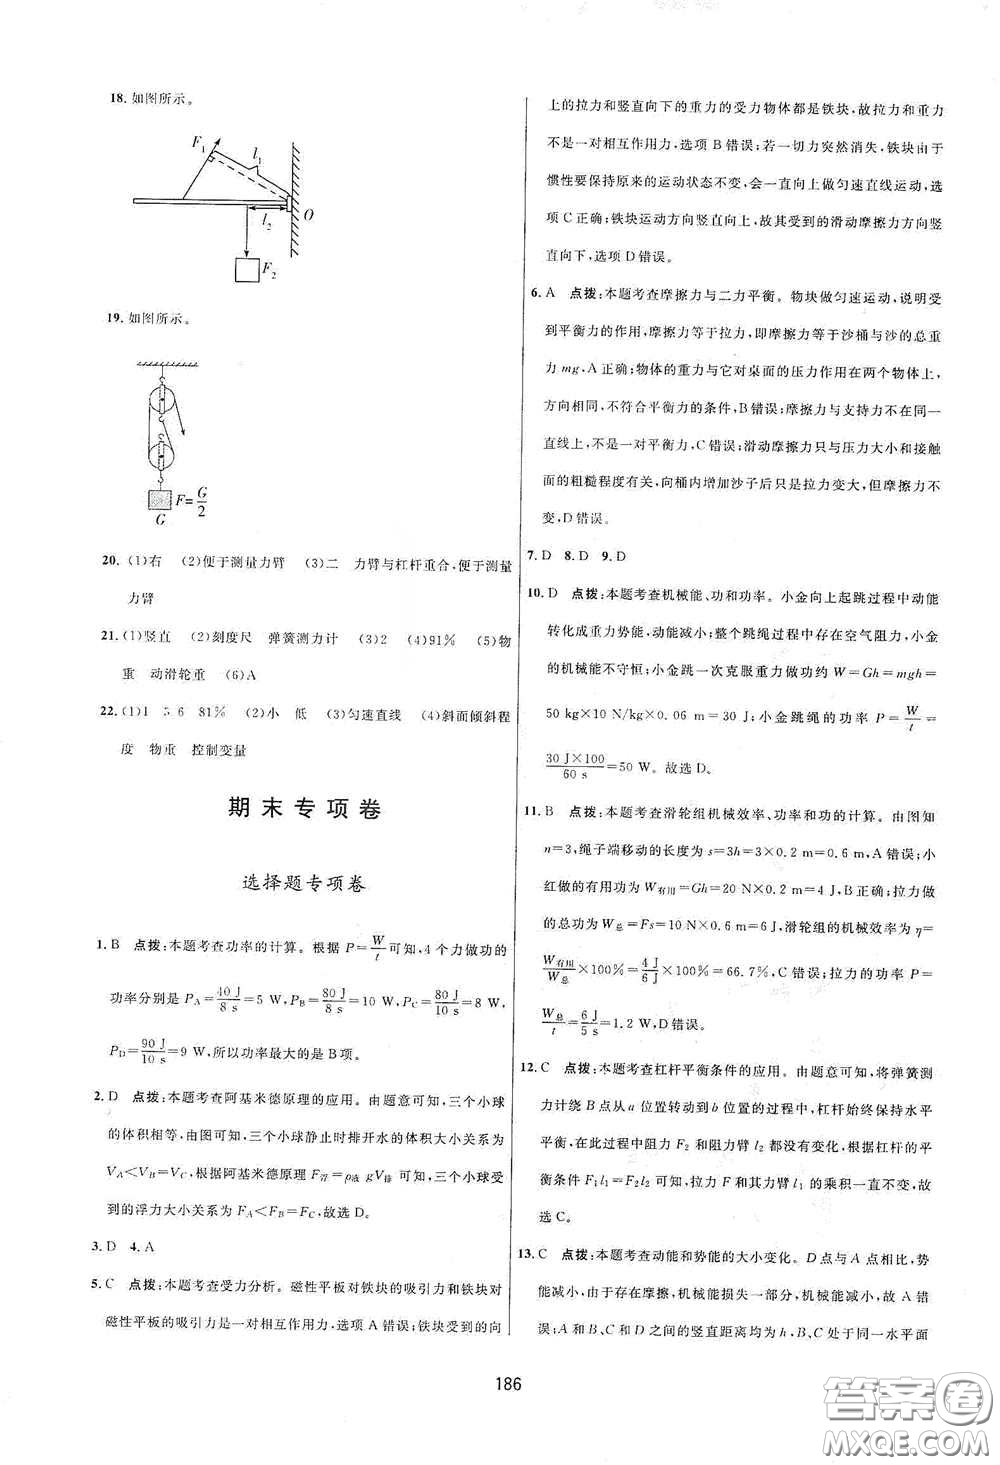 18. 如图所示。
F₁
l₁
l₂
O
F₂
19. 如图所示。
F=G/2
G
20. (1)右 (2)便于测量力臂 (3)二 力臂与杠杆重合,便于测量
力臂
21. (1)竖直 (2)刻度尺 弹簧测力计 (3)2 (4)91% (5)物
重 动滑轮重 (6)A
22. (1)1 5.6 81% (2)小 低 (3)匀速直线 (4)斜面倾斜程
度 物重 控制变量
期末专项卷
选择题专项卷
1. B 点拨:本题考查功率的计算。根据 P=W/t 可知,4 个力做功的
功率分别是 P_A=40 J/8 s=5 W,P_B=80 J/8 s=10 W,P_C=80 J/10 s=8 W,
P_D=90 J/10 s=9 W,所以功率最大的是 B 项。
2. D 点拨:本题考查阿基米德原理的应用。由题意可知,三个小球
的体积相等,由图可知,三个小球静止时排开水的体积大小关系为
V_A<V_B=V_C,根据阿基米德原理 F浮=ρ液 gV排 可知,三个小球受
到的浮力大小关系为 F_A<F_B=F_C,故选 D。
3. D 4. A
5. C 点拨:本题考查受力分析。磁性平板对铁块的吸引力和铁块对
磁性平板的吸引力是一对相互作用力,选项 A 错误;铁块受到的向
上的拉力和竖直向下的重力的受力物体都是铁块,故拉力和重力
不是一对相互作用力,选项 B 错误;若一切力突然消失,铁块由于
惯性要保持原来的运动状态不变,会一直向上做匀速直线运动,选
项 C 正确;铁块运动方向竖直向上,故其受到的滑动摩擦力方向竖
直向下,选项 D 错误。
6. A 点拨:本题考查摩擦力与二力平衡。物块做匀速运动,说明受
到平衡力的作用,摩擦力等于拉力,即摩擦力等于沙桶与沙的总重
力 mg,A 正确;物体的重力与它对桌面的压力作用在两个物体上,
方向相同,不符合平衡力的条件,B 错误;摩擦力与支持力不在同一
直线上,不是一对平衡力,C 错误;滑动摩擦力只与压力大小和接触
面的粗糙程度有关,向桶内增加沙子后只是拉力变大,但摩擦力不
变,D 错误。
7. D 8. D 9. D
10. D 点拨:本题考查机械能、功和功率。小金向上起跳过程中动能
转化成重力势能,动能减小;整个跳绳过程中存在空气阻力,小金
的机械能不守恒;小金跳一次克服重力做功约 W=Gh=mgh=
50 kg×10 N/kg×0.06 m=30 J;小金跳绳的功率 P=W/t=
30 J×100/60 s=50 W。故选 D。
11. B 点拨:本题考查滑轮组机械效率、功率和功的计算。由图知
n=3,绳子端移动的长度为 s=3h=3×0.2 m=0.6 m,A 错误;小
红做的有用功为 W有用=Gh=20 N×0.2 m=4 J,B 正确;拉力做
的总功为 W总=Fs=10 N×0.6 m=6 J,滑轮组的机械效率为 η=
W有用/W总×100%=4 J/6 J×100%=66.7%,C 错误;拉力的功率 P=
W总/t=6 J/5 s=1.2 W,D 错误。
12. C 点拨:本题考查杠杆平衡条件的应用。由题意可知,将弹簧测
力计绕 B 点从 a 位置转动到 b 位置的过程中,杠杆始终保持水平
平衡,在此过程中阻力 F₂ 和阻力臂 l₂ 都没有变化,根据杠杆的平
衡条件 F₁l₁=F₂l₂ 可知,拉力 F 和其力臂 l₁ 的乘积一直不变,故
选 C。
13. C 点拨:本题考查动能和势能的大小变化。D 点与 A 点相比,势
能减小,由于存在摩擦,机械能损失一部分,机械能减小,故 A 错
误;A 和 B、C 和 D 之间的竖直距离均为 h,B、C 处于同一水平面
186
答案卷
MXQE.COM